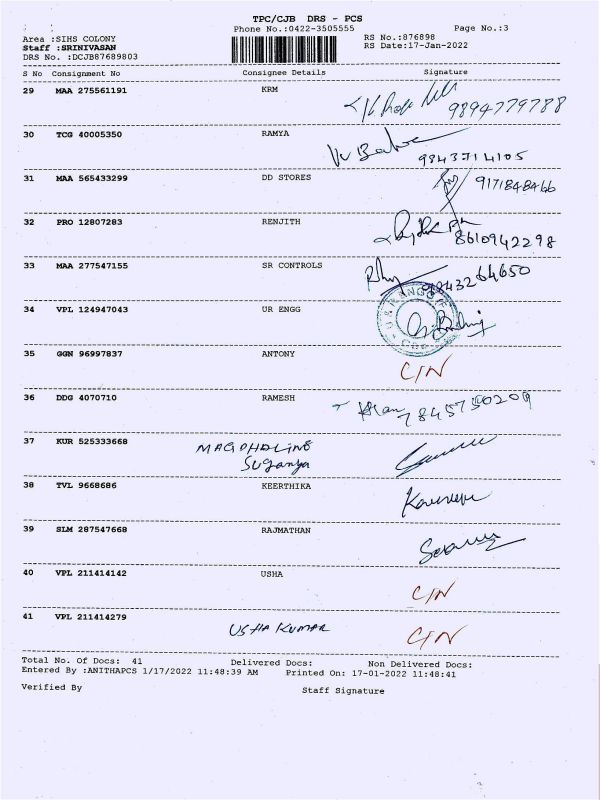 TPC/CJB DRS - PCS
Phone No.:0422-3505555 Page No.:3
Area :SIHS COLONY RS No.:876898
Staff :SRINIVASAN RS Date:17-Jan-2022
DRS No. :DCJB87689803
S No Consignment No Consignee Details Signature
29 MAA 275561191 KRM
9894779788
30 TCG 40005350 RAMYA
9843714105
31 MAA 565433299 DD STORES 9171848466
32 PRO 12807283 RENJITH
8610942298
33 MAA 277547155 SR CONTROLS 9843264650
34 VPL 124947043 UR ENGG
35 GGN 96997837 ANTONY
C/N
36 DDG 4070710 RAMESH
7845750209
37 KUR 525333668 MAGDHALINE
Suganya
38 TVL 9668686 KEERTHIKA
39 SLM 287547668 RAJMATHAN
40 VPL 211414142 USHA
C/N
41 VPL 211414279
USHA KUMAR C/N
Total No. Of Docs: 41 Delivered Docs: Non Delivered Docs:
Entered By :ANITHAPCS 1/17/2022 11:48:39 AM Printed On: 17-01-2022 11:48:41
Verified By Staff Signature